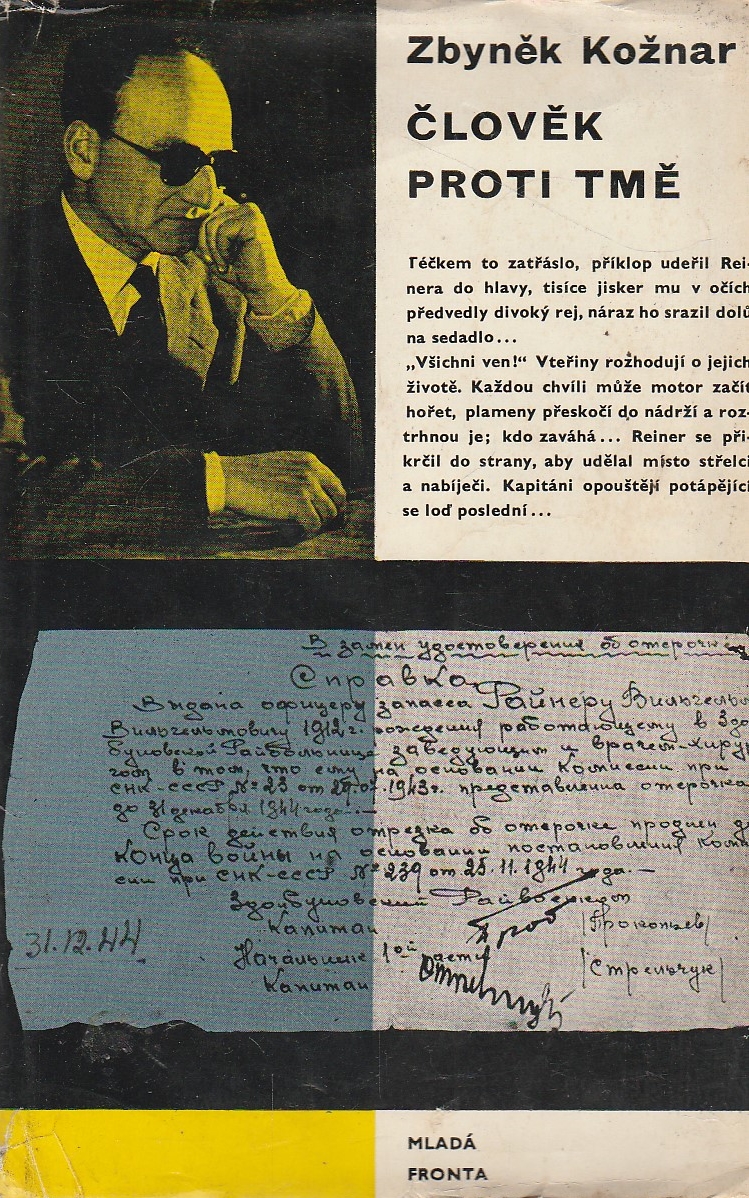 Zbyněk Kožnar
ČLOVĚK
PROTI TMĚ
Téčkem to zatřáslo, příklop udeřil Rei-
nera do hlavy, tisíce jisker mu v očích
předvedly divoký rej, náraz ho srazil dolů
na sedadlo...
„Všichni ven!“ Vteřiny rozhodují o jejich
životě. Každou chvíli může motor začít
hořet, plameny přeskočí do nádrží a roz-
trhnou je; kdo zaváhá... Reiner se při-
krčil do strany, aby udělal místo střelci
a nabíječi. Kapitáni opouštějí potápějící
se loď poslední...
В замен удостоверения об отерочке
Справка
Выдана офицеру запаса Райнеру Вильгельм
Вильгельмовичу 1912 г. рождения работающему в Здо
буновской Райбольнице заведующим и врачем-хирур
гом в том, что ему на основании Комиссии при
СНК-СССР № 23 от 1943г. представлена отерочка
до 31 декабря 1944 года.-
Срок действия отрезка об отерочке продлен до
конца войны на основании постановления Коми
сии при СНК-СССР № 239 от 25.11.1944 года.-
Здолбуновский Райвоенком
Капитан /Прокопьев/
31.12.44
Начальник 1ой части
Капитан /Стрельчук/
MLADÁ
FRONTA